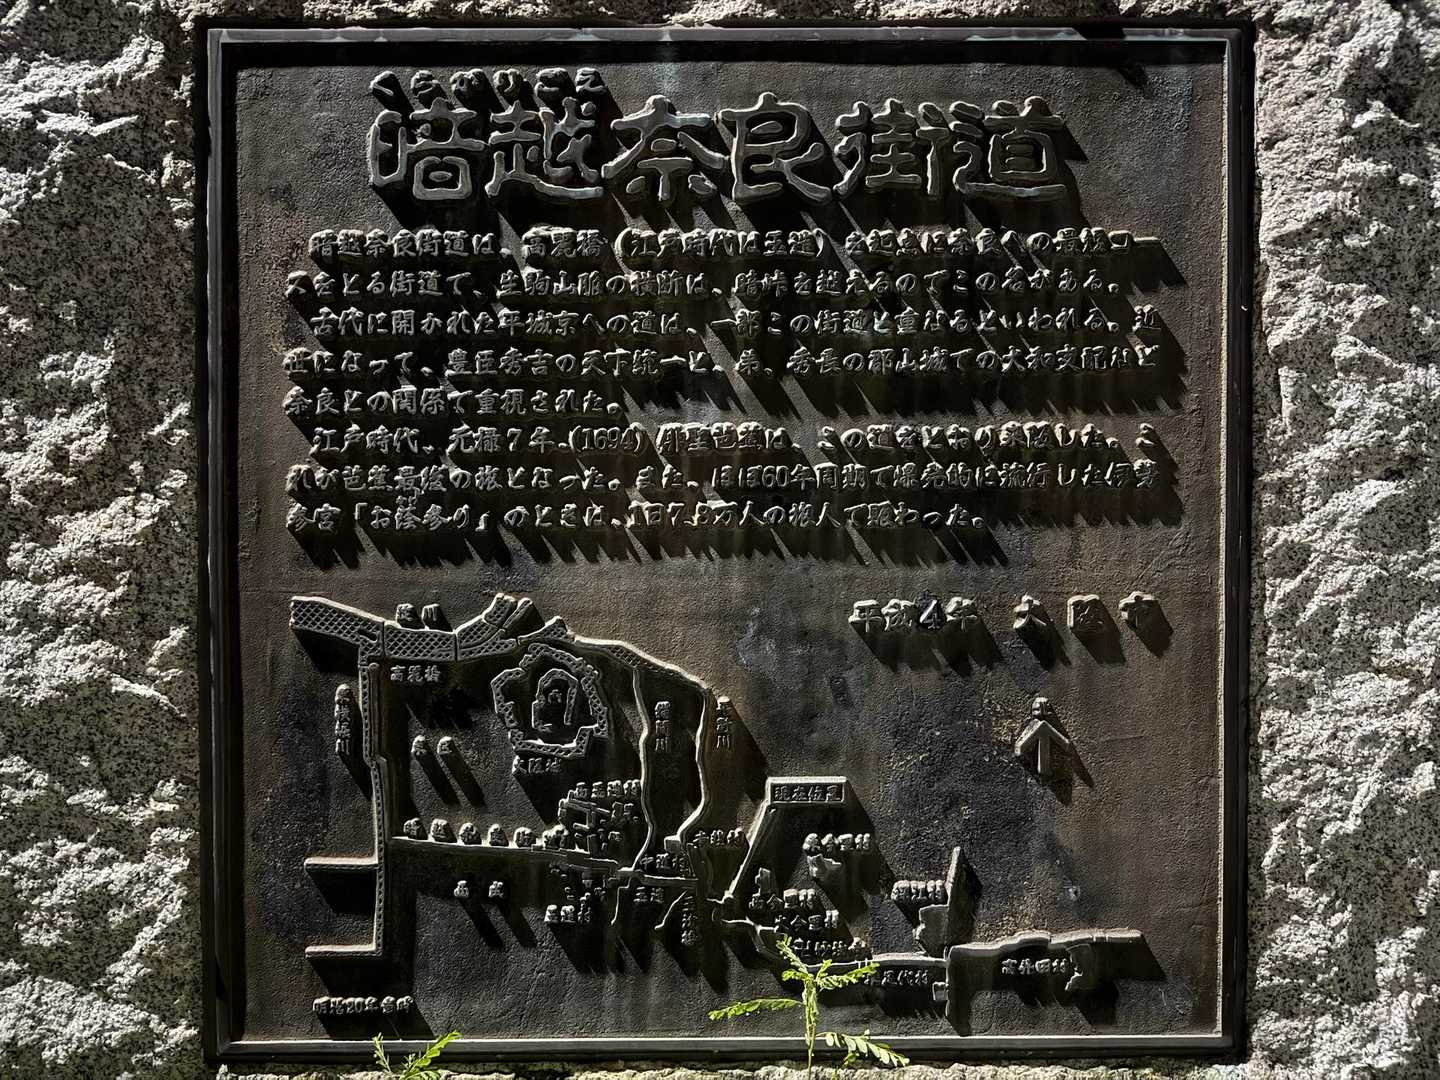 くらがりごえ
暗越奈良街道
暗越奈良街道は、高麗橋（江戸時代は玉造）を起点に奈良への最短コー
スをとる街道で、生駒山脈の横断は、暗峠を越えるのでこの名がある。
古代に開かれた平城京への道は、一部この街道と重なるといわれる。近
世になって、豊臣秀吉の天下統一と、弟、秀長の郡山城での大和支配など
奈良との関係で重視された。
江戸時代、元禄7年、(1694) 芭蕉は、この道をとおり来阪した。こ
れが芭蕉最後の旅となった。また、ほぼ60年周期で爆発的に流行した伊勢
参宮「お蔭参り」のときは、1日7,8万人の旅人で賑わった。
平成4年 大阪市
淀川
高麗橋
大阪城
現在位置
玉造
暗越奈良街道
明治20年当時